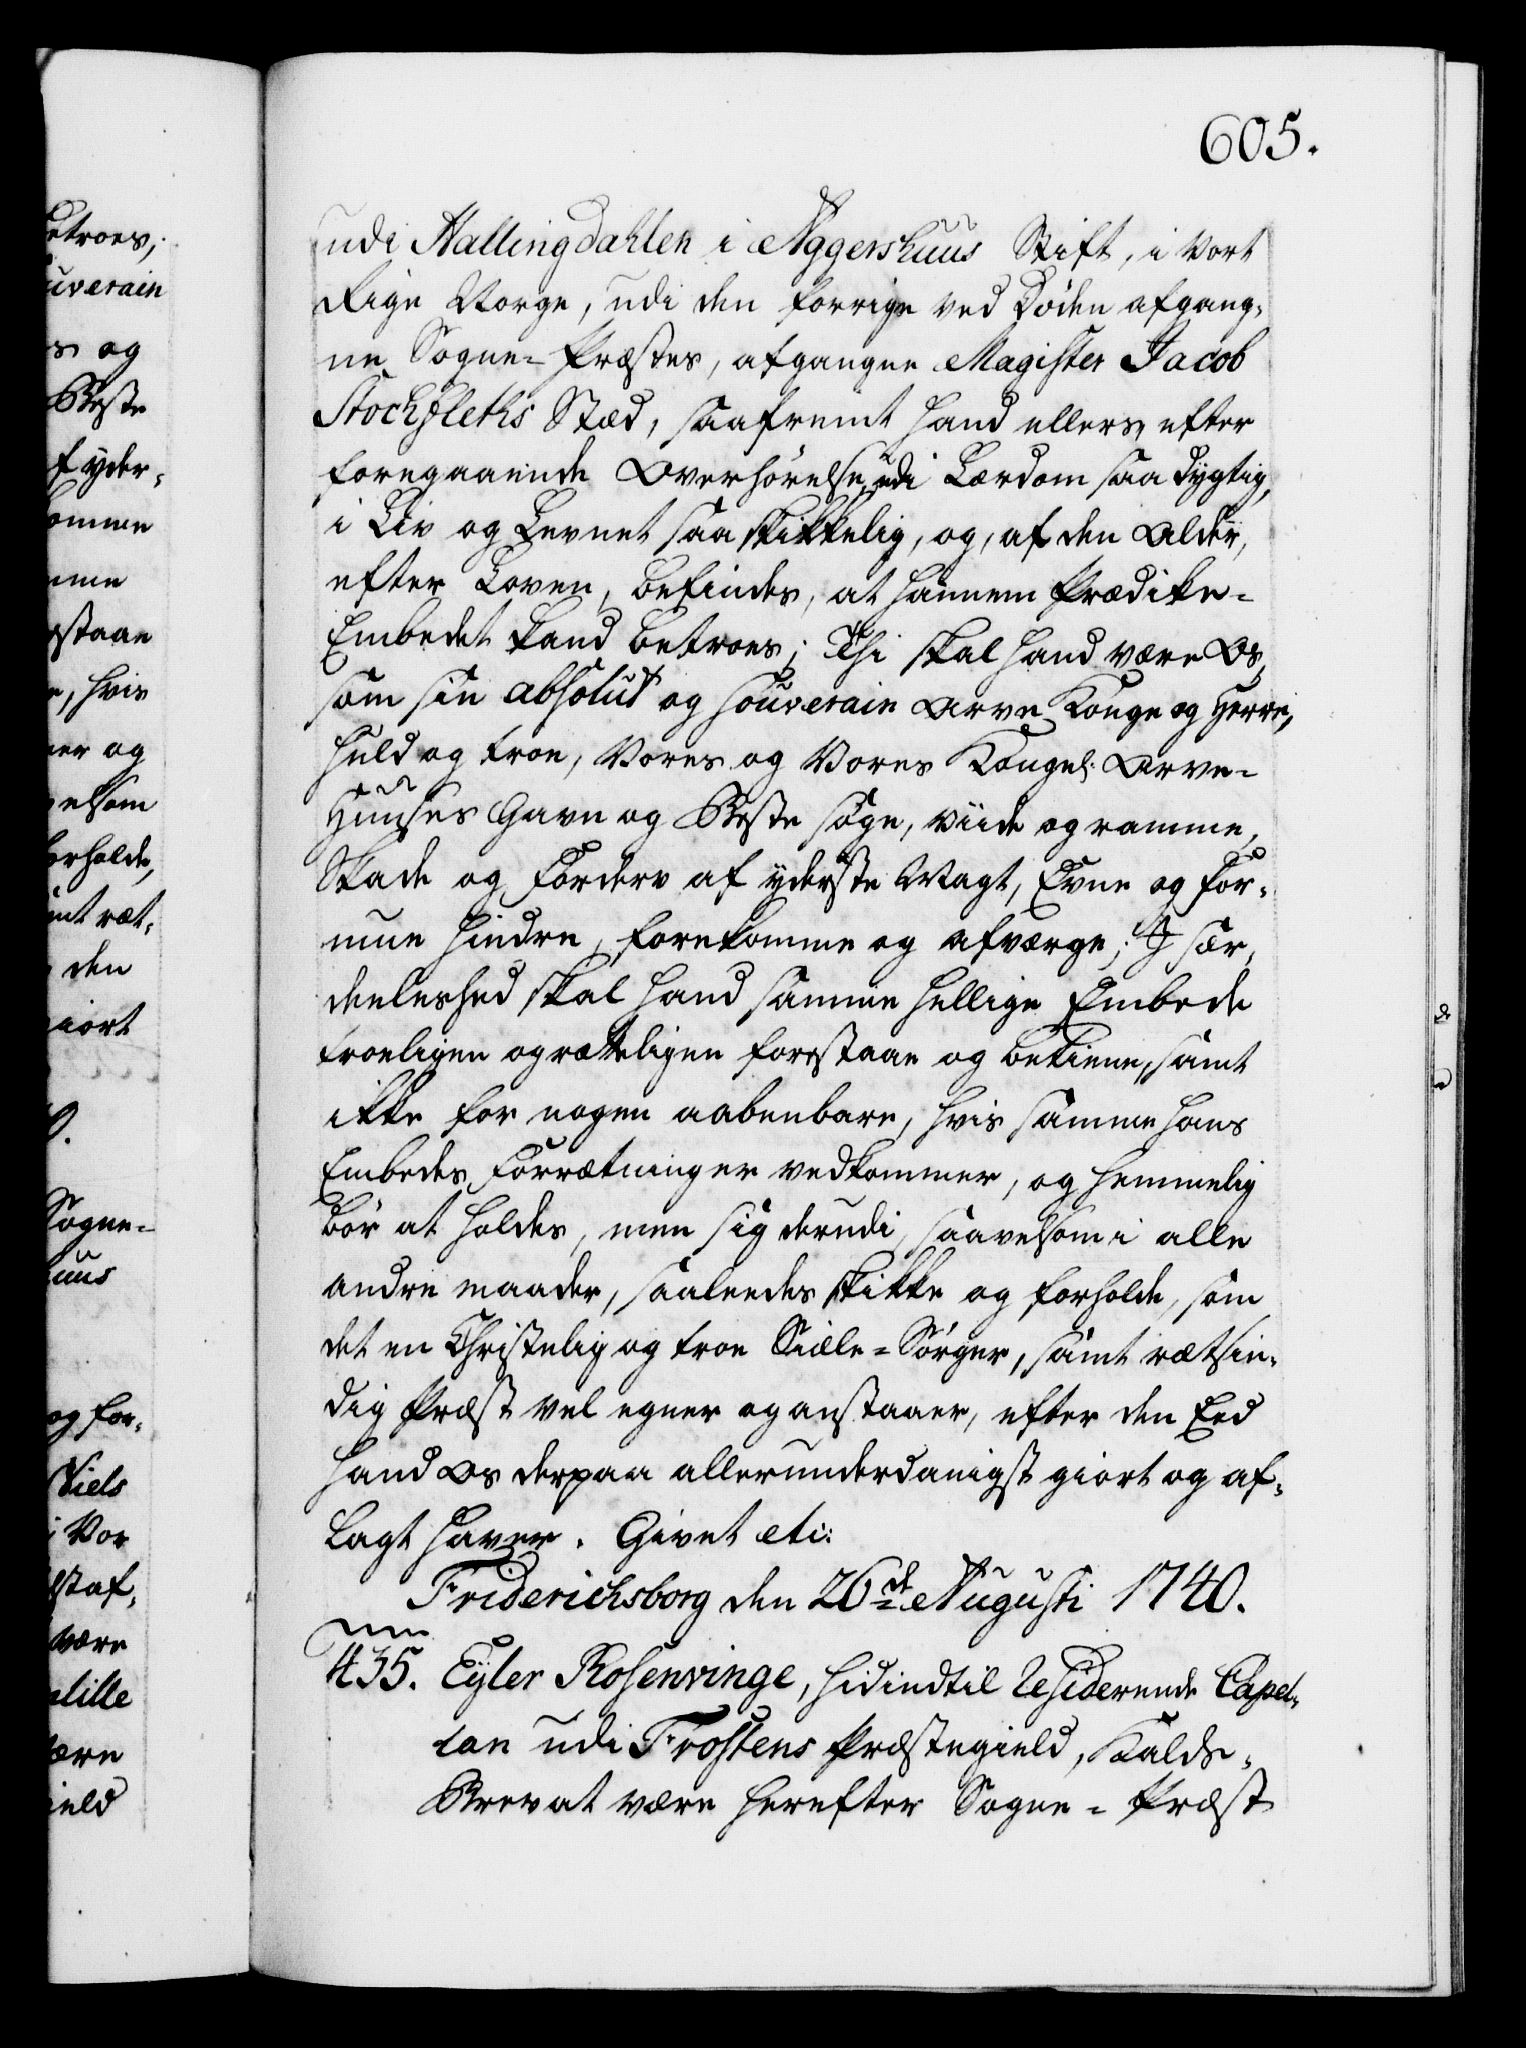 605.
udi Hallingdahlen i Aggershuus Stift, i Vort
Rige Norge, udi den forrige ved Döden afgang-
ne Sogne-Præstes, afgangne Magister Jacob
Stochfleths Stæd, saafremt hand ellers, efter
foregaaende Overhörelse, udi Lærdom saa dygtig,
i Liv og Levnet saa skikkelig, og, af den Alder,
efter Loven, befindes, at hannem Prædike-
Embedet kand betroes; Thi skal hand være Os,
som sin absolut og souverain Arve Konge og Herre,
huld og troe, Vores og Vores Kongel: Arve-
Huuses Gavn og Beste söge, viide og ramme,
Skade og Forderv af yderste Magt, Evne og For-
mue hindre, forekomme og afværge; I sær-
deeleshed skal hand samme hellige Embede
troeligen og rætteligen forestaae og betiene, samt
ikke for nogen aabenbare, hvis samme hans
Embedes Forrætninger vedkommer, og hemmelig
bör at holdes, men sig derudi, saavelsom i alle
andre maader, saaledes skikke og forholde, som
det en Christelig og troe Siæle-Sörger, samt rætsin-
dig Præst vel egner og anstaaer, efter den Eed
hand Os derpaa allerunderdanigst giort og af-
lagt haver. Givet etc:
Friderichsborg den 26de Augusti 1740.
435. Eyler Rosenvinge, hidindtil Residerende Capel-
lan udi Frostens Præstegield, Kalds-
Brev at være herefter Sogne-Præst
etroes,
uverain
s og
Beste
f yder-
komme
mme
estaae
e, hvis
ner og
velsom
forholde,
amt ræt-
den
giort
Sogne-
huus
og for-
Niels
i Vor
staf-
være
lille
være
ield